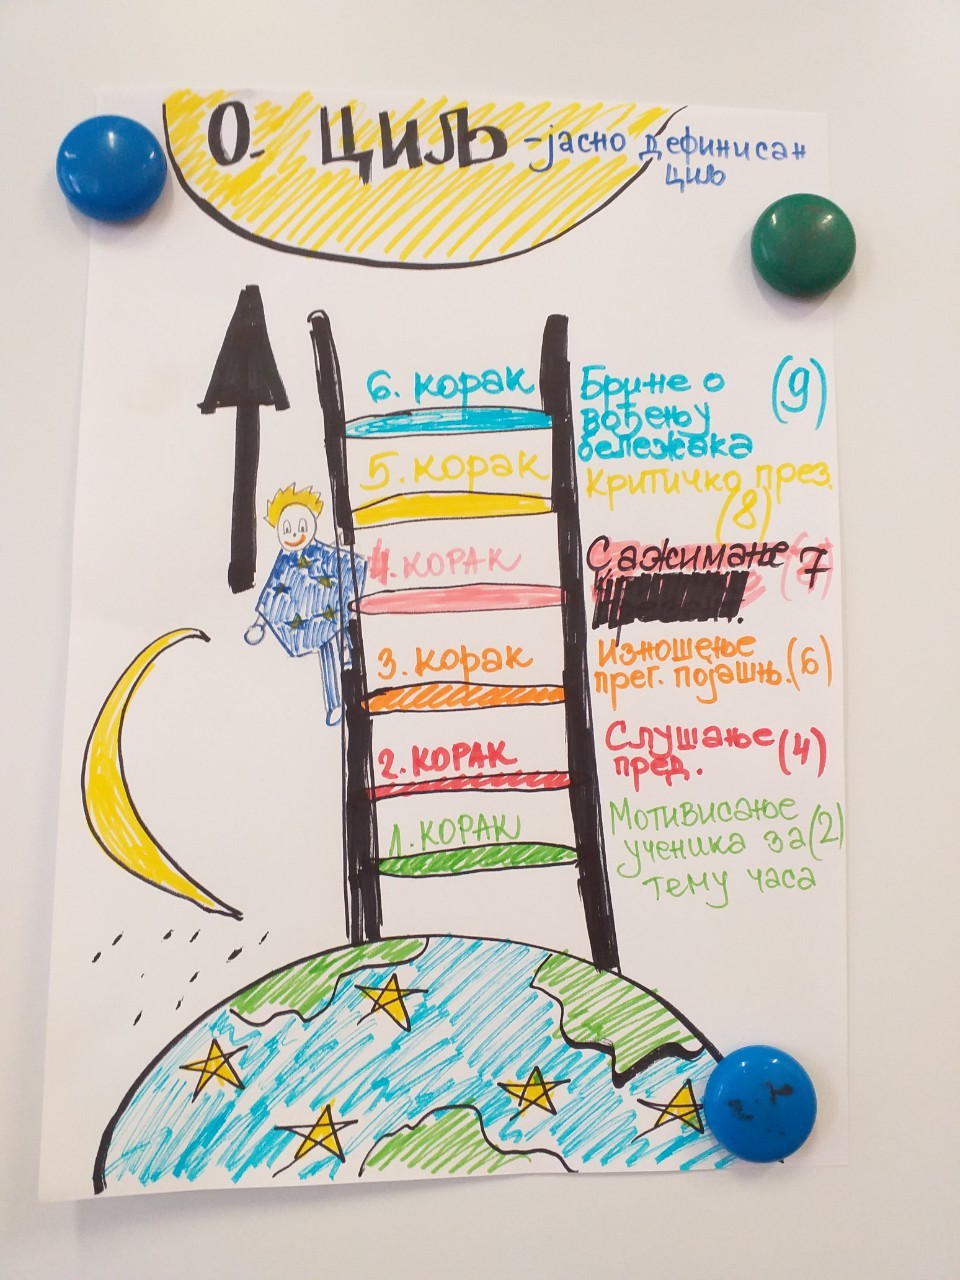 О. ЦИЉ -јасно дефинисан
циљ
6. корак Брине о (9)
вођењу
бележака
5. корак Критичко през.
(8)
4. КОРАК Сажимање 7
3. корак Изношење
прег. појашњ. (6)
2. КОРАК Слушање (4)
пред.
1. КОРАК Мотивисање
ученика за (2)
тему часа